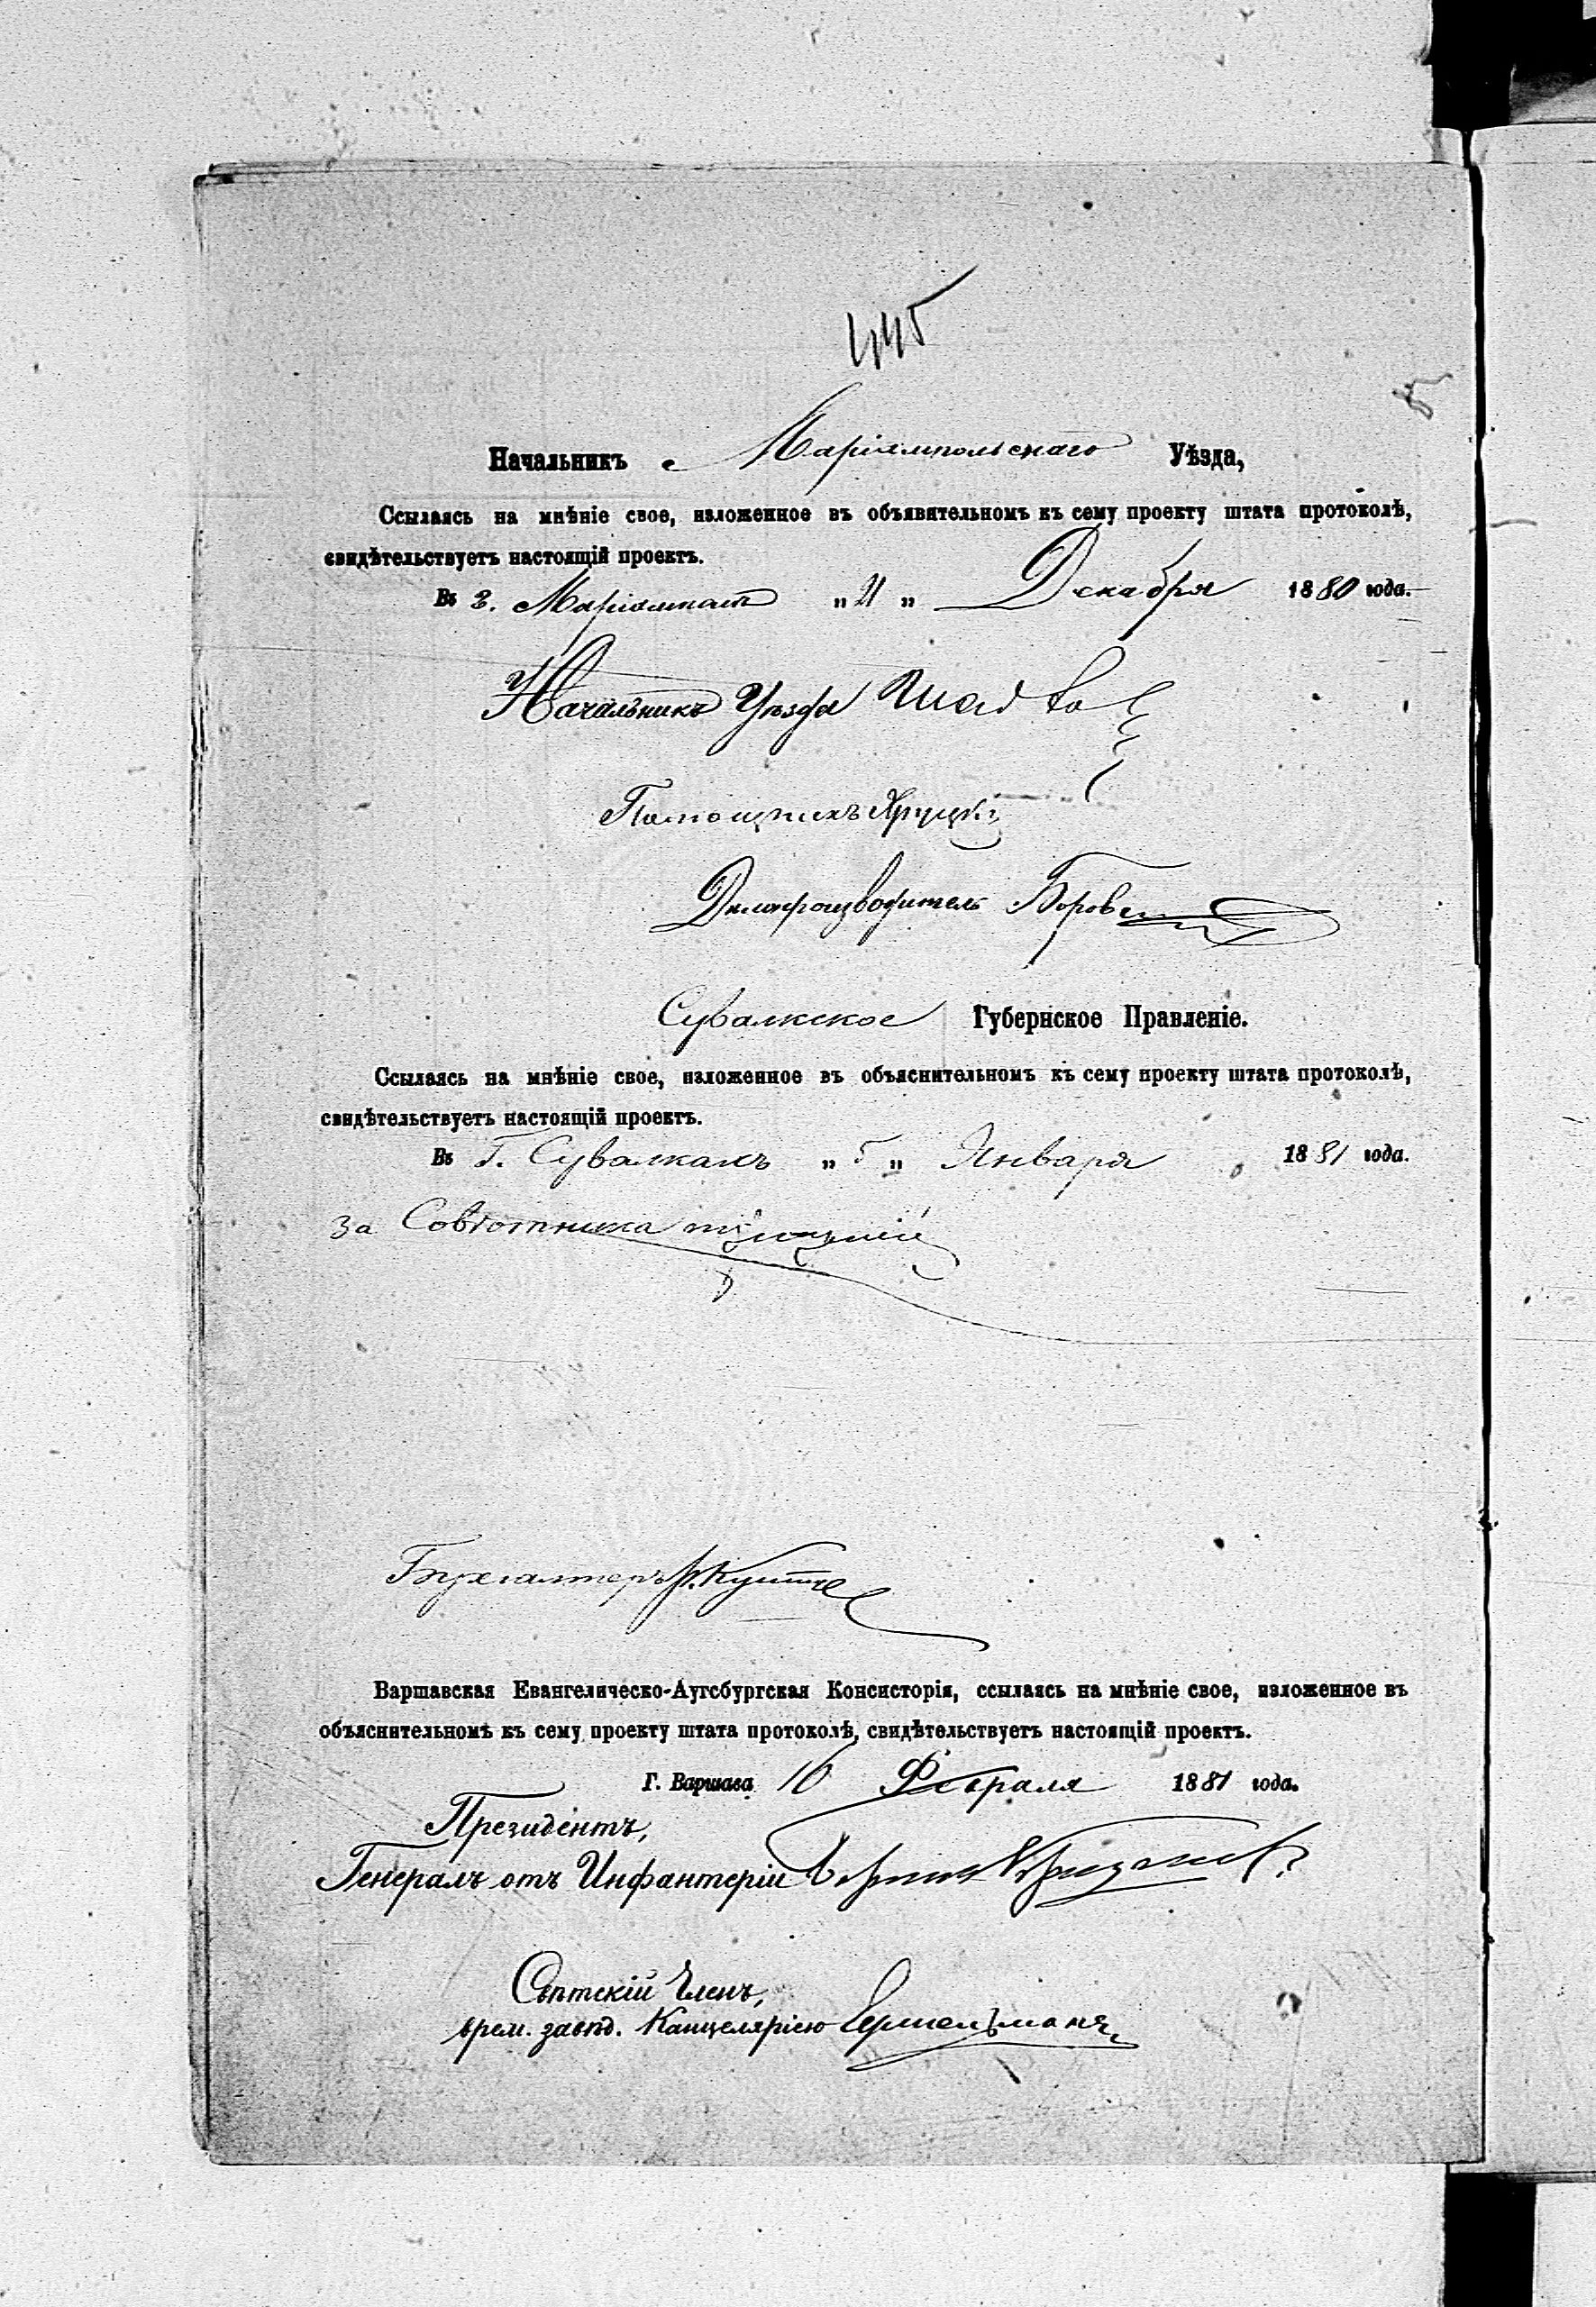 445
Начальникъ Маріямпольскаго Уѣзда,
Ссылаясь на мнѣніе свое, изложенное въ объявительномъ къ сему проекту штата протоколѣ,
свидѣтельствуетъ настоящій проектъ.
Въ г. Маріямполѣ „ 21 „ Декабря 1880 года.
Начальникъ Уѣзда
Помощникъ
Дѣлопроизводитель
Сувалкское Губернское Правленіе.
Ссылаясь на мнѣніе свое, изложенное въ объяснительномъ къ сему проекту штата протоколѣ,
свидѣтельствуетъ настоящій проектъ.
Въ Г. Сувалкахъ „ 5 „ Января 1881 года.
За Совѣтника
Бухгалтеръ
Варшавская Евангелическо-Аугсбургская Консисторія, ссылаясь на мнѣніе свое, изложенное въ
объяснительномъ къ сему проекту штата протоколѣ, свидѣтельствуетъ настоящій проектъ.
Г. Варшава 16 Февраля 1881 года.
Президентъ,
Генералъ отъ Инфантеріи
Свѣтскій Членъ,
врем. завѣд. Канцеляріею